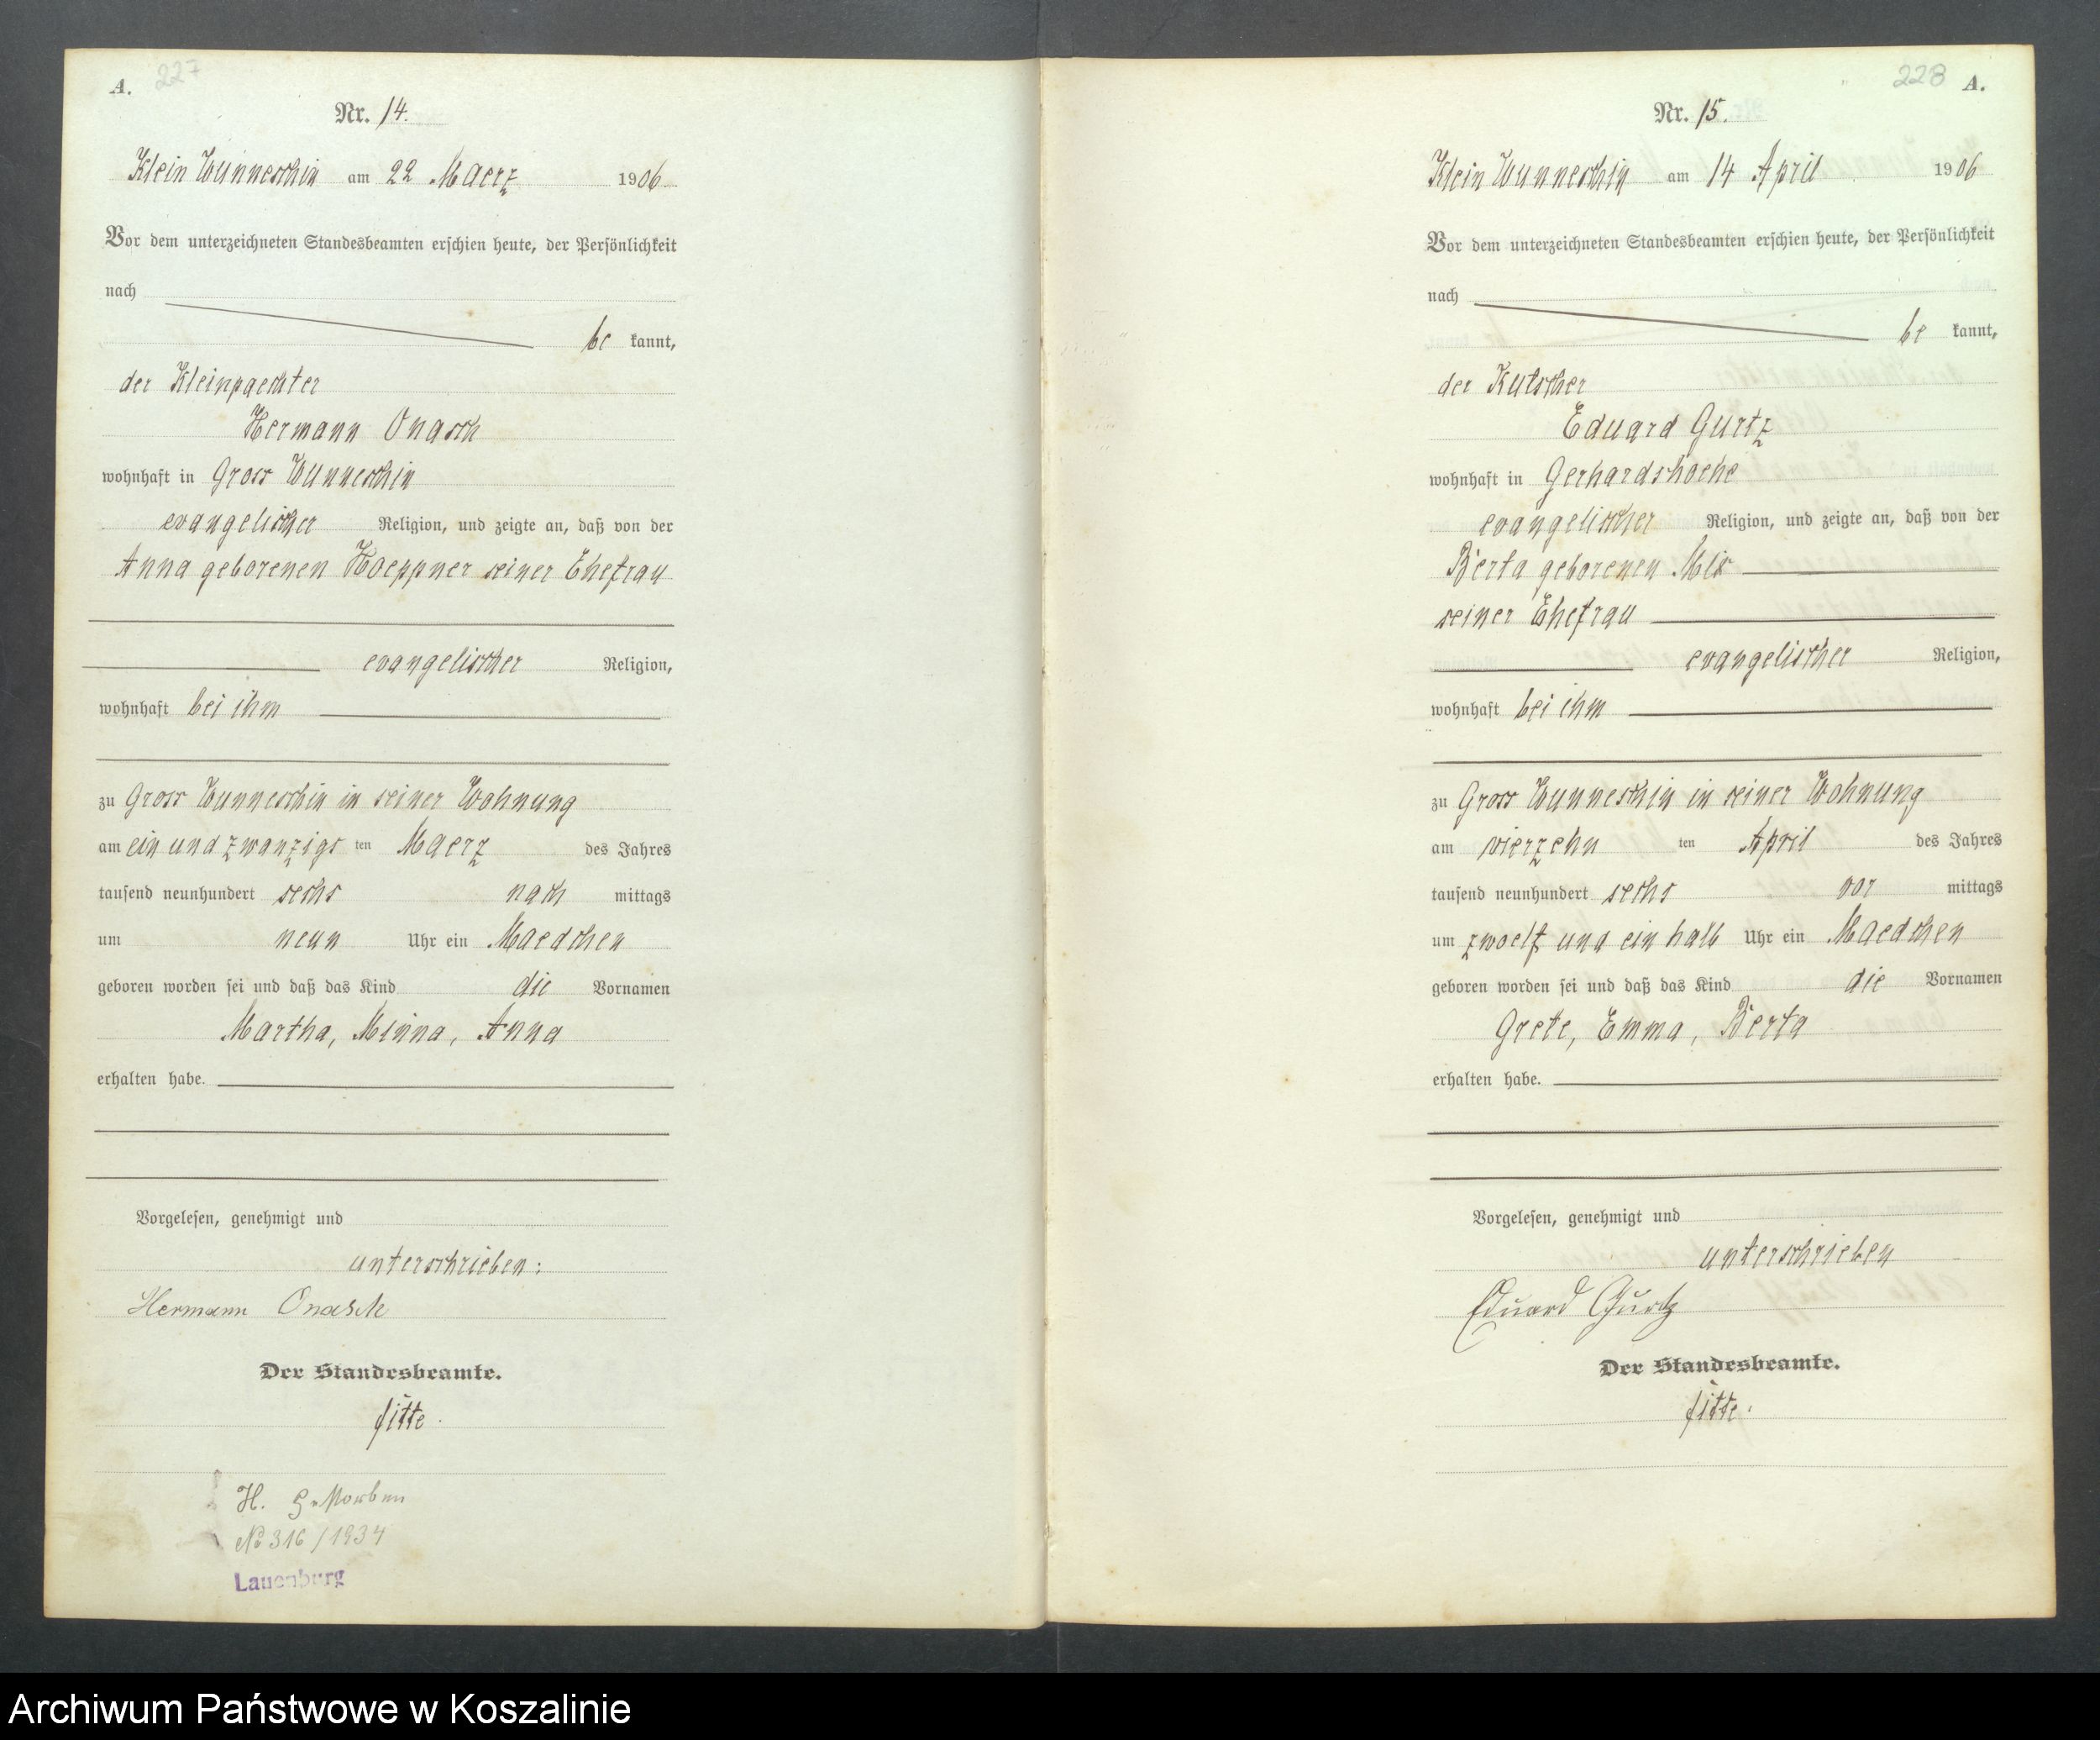 A. 227
Nr. 14.
Klein Wunneschin am 22 Maerz 1906
Vor dem unterzeichneten Standesbeamten erschien heute, der Persönlichkeit
nach
be kannt,
der Kleinpaechter
Hermann Onasch
wohnhaft in Gross Wunneschin
evangelischer Religion, und zeigte an, daß von der
Anna geborenen Hoeppner seiner Ehefrau
evangelischer Religion,
wohnhaft bei ihm
zu Gross Wunneschin in seiner Wohnung
am ein und zwanzigs ten Maerz des Jahres
tausend neunhundert sechs nach mittags
um neun Uhr ein Maedchen
geboren worden sei und daß das Kind die Vornamen
Martha, Minna, Anna
erhalten habe.
Vorgelesen, genehmigt und
unterschrieben:
Hermann Onasch
Der Standesbeamte.
H. Gestorben
No 316/1934
Lauenburg
228 A.
Nr. 15.
Klein Wunneschin am 14 April 1906
Vor dem unterzeichneten Standesbeamten erschien heute, der Persönlichkeit
nach
be kannt,
der Kutscher
Eduard Gurtz
wohnhaft in Gerhardshoehe
evangelischer Religion, und zeigte an, daß von der
Berta geborenen Mix
seiner Ehefrau
evangelischer Religion,
wohnhaft bei ihm
zu Gross Wunneschin in seiner Wohnung
am vierzehn ten April des Jahres
tausend neunhundert sechs vor mittags
um zwoelf und ein halb Uhr ein Maedchen
geboren worden sei und daß das Kind die Vornamen
Grete, Emma, Berta
erhalten habe.
Vorgelesen, genehmigt und
unterschrieben
Eduard Gurtz
Der Standesbeamte.
Archiwum Państwowe w Koszalinie